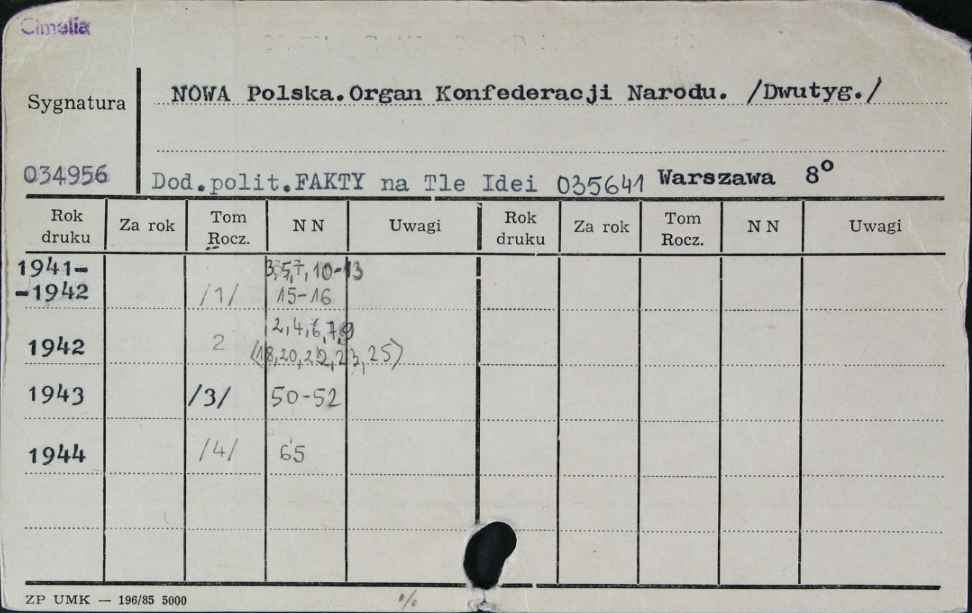 Cimelia
Sygnatura
NOWA Polska.Organ Konfederacji Narodu. /Dwutyg./
034956
Dod.polit.FAKTY na Tle Idei 035641 Warszawa 8°
Rok druku Za rok Tom Rocz. N N Uwagi Rok druku Za rok Tom Rocz. N N Uwagi
1941- 3,5,7,10-13
-1942 /1/ 15-16
2,4,6,7,9
1942 2 (18,20,22,23,25)
1943 /3/ 50-52
1944 /4/ 65
ZP UMK — 196/85 5000